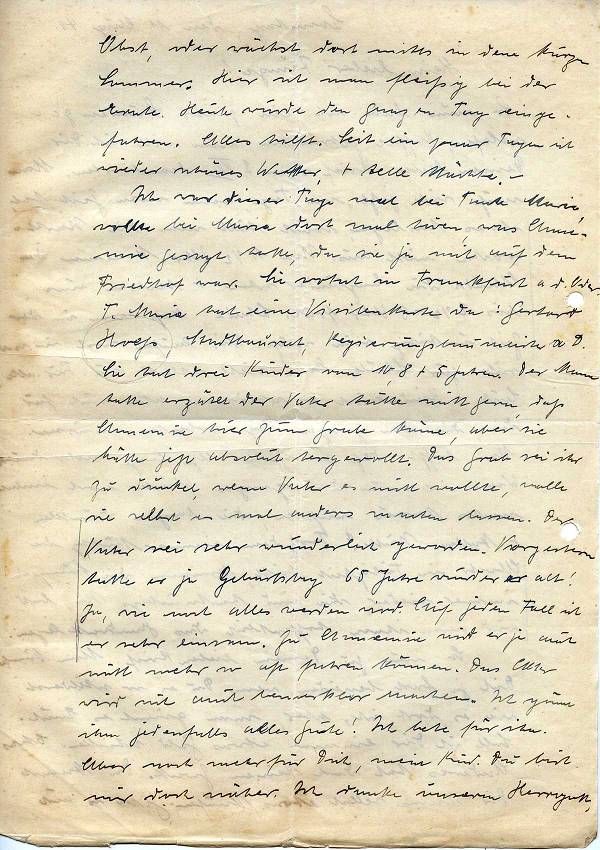 Obst, oder wächst dort nichts in dem kurzen
Sommer. Hier ist man fleißig bei der
Ernte. Heute wurde den ganzen Tag einge-
fahren. Alles hilft. Seit ein paar Tagen ist
wieder schönes Wetter, + helle Nächte. –
Ich war dieser Tage mal bei Tante Maria,
wollte bei Maria dort mal hören, was Anne-
mie gesagt hatte, da sie ja mit auf dem
Friedhof war. Sie wohnt in Frankfurt a. d. Oder
T. Maria hat eine Visitenkarte da: Gerhard
Stadtbaurat, Regierungsbaumeister a. D.
Sie hat drei Kinder von 10, 8 + 5 Jahren. Der Mann
hatte erzählt der Vater hätte nicht gern, daß
Annemie hier zum Grabe käme, aber sie
hätte jetzt absolut hergewollt. Das Grab sei ihr
zu dunkel, wenn Vater es nicht wollte, wolle
sie selbst es mal anders machen lassen. Der
Vater sei sehr wunderlich geworden. Vorgestern
hatte er ja Geburtstag 65 Jahre wurde er alt!
Ja, wie mal alles werden wird. Auf jeden Fall ist
er sehr einsam. Zu Annemie wird er ja auch
nicht mehr so oft fahren können. Das Alter
wird sich auch bemerkbar machen. Ich gönne
ihm jedenfalls alles Gute! Ich bete für ihn.
Aber noch mehr für Dich, mein Kind. Du bist
mir doch näher. Ich danke unserem Herrgott,